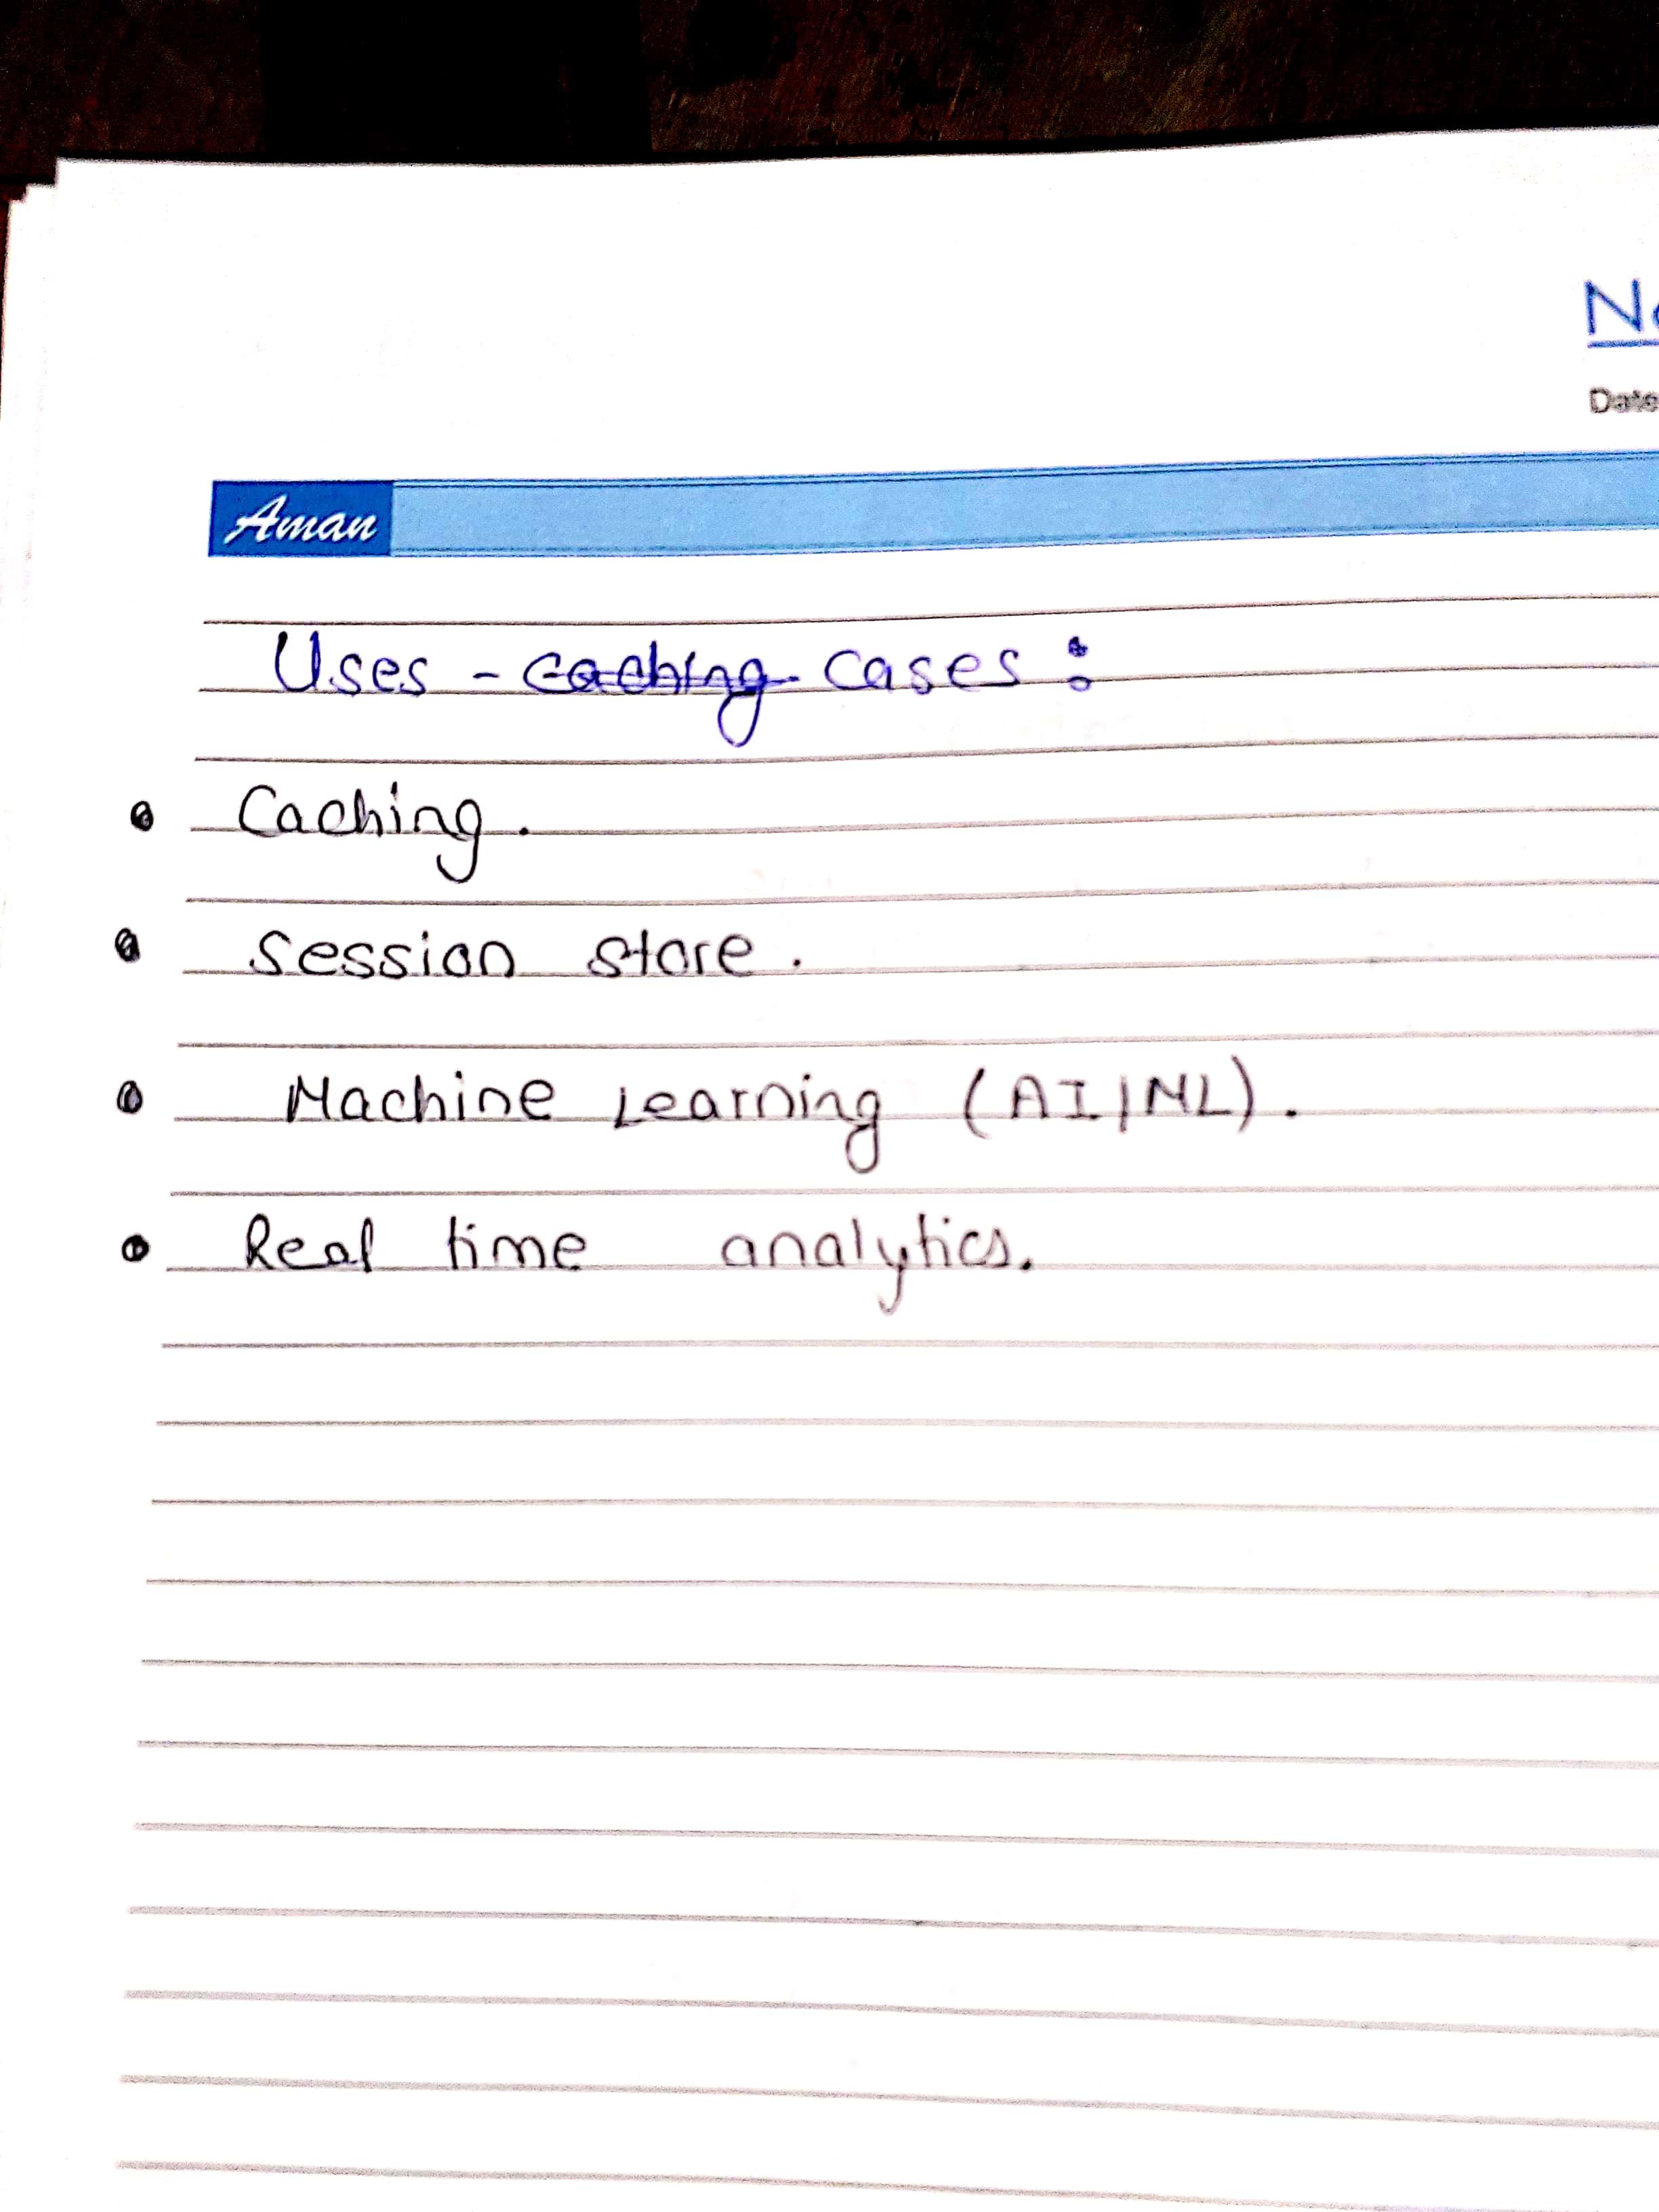 No
Date
Aman
Uses - caching cases :
• Caching.
• Session store.
• Machine Learning (AI/ML).
• Real time analytics.